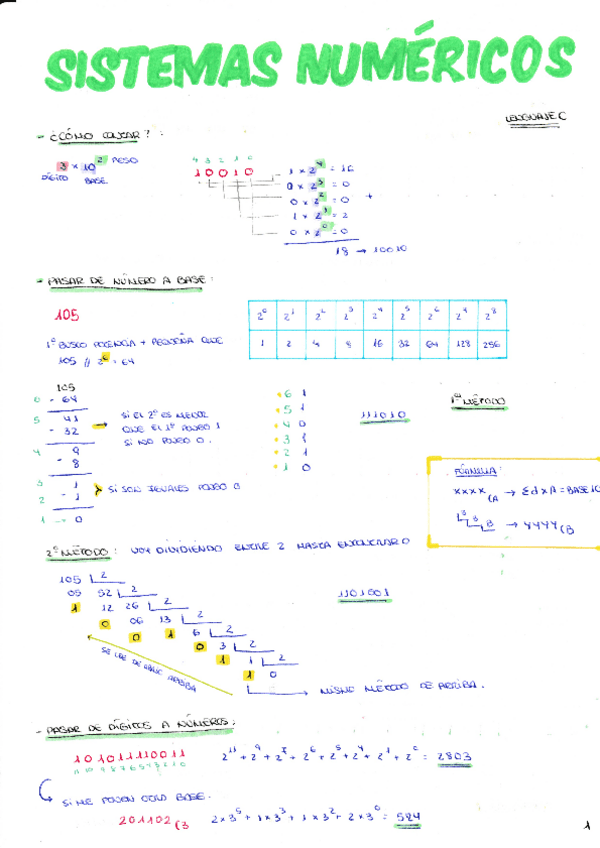 SISTEMAS NUMÉRICOS
LENGUAJE C
- ¿CÓMO CONTAR? :
3 × 10² PESO
DÍGITO BASE
4 3 2 1 0
1 0 0 1 0
1 × 2⁴ = 16
0 × 2³ = 0
0 × 2² = 0 +
1 × 2¹ = 2
0 × 2⁰ = 0
18 → 10010
- PASAR DE NÚMERO A BASE:
105
2⁰ 2¹ 2² 2³ 2⁴ 2⁵ 2⁶ 2⁷ 2⁸
1 2 4 8 16 32 64 128 256
1º BUSCO POTENCIA + PEQUEÑA QUE
105 // 2⁶ = 64
105
6 - 64
5 41
- 32
4 9
- 8
3 1
2 - 1
1 → 0
SI EL 2º ES MENOR
QUE EL 1º PONGO 1
SI NO PONGO 0.
SI SON IGUALES PONGO
6 1
5 1
4 0
3 1
2 1
1 0
111010
1º MÉTODO
FÓRMULA:
xxxx (A → Σd×A = BASE 10
B B B → YYYY (B
2º MÉTODO: VOY DIVIDIENDO ENTRE 2 HASTA ENCONTRAR 0
105 2
05 52 2
1 12 26 2
0 06 13 2
0 1 6 2
0 3 2
1 1 2
1 0
1101001
SE LEE DE ABAJO ARRIBA
MISMO MÉTODO DE ARRIBA.
- PASAR DE DÍGITOS A NÚMEROS:
101011110011
11 10 9 8 7 6 5 4 3 2 1 0
2¹¹ + 2⁹ + 2⁷ + 2⁶ + 2⁵ + 2⁴ + 2¹ + 2⁰ = 2803
SI ME PONEN OTRA BASE.
201102 (3
2×3⁵ + 1×3³ + 1×3² + 2×3⁰ = 524
1